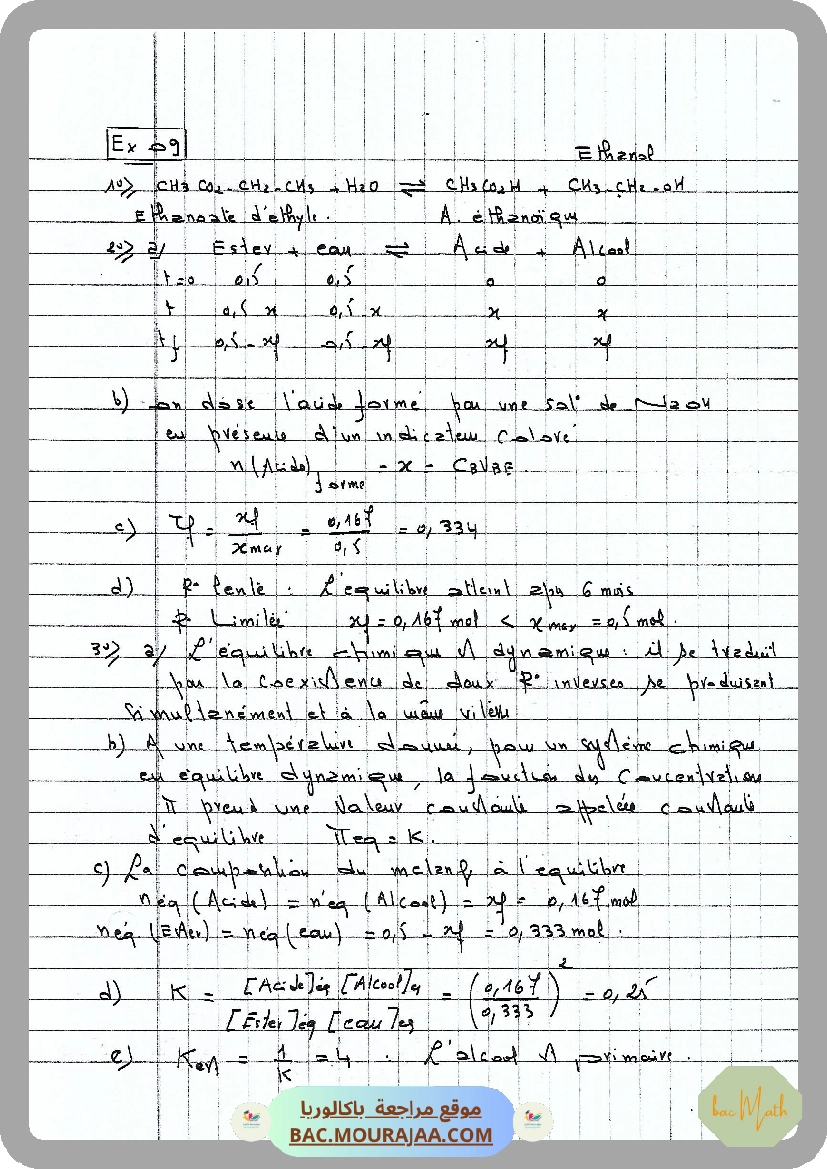 Ex 09
Ethanol
1°) CH3 CO2-CH2-CH3 + H2O ⇌ CH3CO2H + CH3-CH2-OH
Ethanoate d'éthyle. A. éthanoïque
2°) a/ Ester + eau ⇌ Acide + Alcool
t=0 0,5 0,5 0 0
t 0,5-x 0,5-x x x
tf 0,5-xf 0,5-xf xf xf
b) on dose l'acide formé par une sol° de NaOH
en présence d'un indicateur coloré
n(Acide)formé = x = CBVBE.
c) τf = xf/xmax = 0,167/0,5 = 0,334
d) R° lente : L'équilibre atteint après 6 mois
R° Limitée xf = 0,167 mol < xmax = 0,5 mol.
3°) a/ L'équilibre chimique est dynamique : il se traduit
par la coexistence de deux R° inverses se produisant
simultanément et à la même vitesse
b) A une température donnée, pour un système chimique
en équilibre dynamique, la fonction des concentrations
π prend une valeur constante appelée constante
d'équilibre πeq = K.
c) La composition du mélange à l'équilibre
néq (Acide) = néq (Alcool) = xf = 0,167 mol
néq (Ester) = néq (eau) = 0,5 - xf = 0,333 mol.
d) K = [Acide]éq [Alcool]éq / [Ester]éq [eau]éq = (0,167/0,333)² = 0,25
e) Kest = 1/K = 4 . L'alcool est primaire.
موقع مراجعة باكالوريا
BAC.MOURAJAA.COM
bac Math